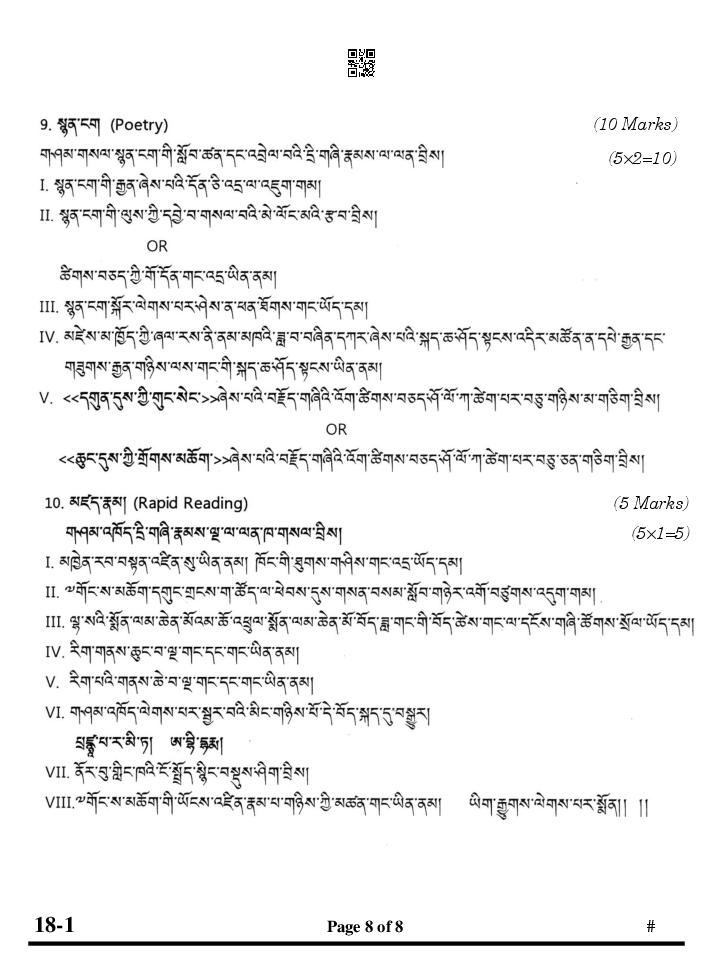 9. སྙན་ངག (Poetry) (10 Marks)
གཤམ་གསལ་སྙན་ངག་གི་སློབ་ཚན་དང་འབྲེལ་བའི་དྲི་གཞི་རྣམས་ལ་ལན་བྲིས། (5×2=10)
I. སྙན་ངག་གི་རྒྱན་ཞེས་པའི་དོན་ཅི་འདྲ་ལ་འཇུག་གམ།
II. སྙན་ངག་གི་ལུས་ཀྱི་དབྱེ་བ་གསལ་བའི་མེ་ལོང་མའི་རྩ་བ་བྲིས།
OR
ཚིགས་བཅད་ཀྱི་གོ་དོན་གང་འདྲ་ཡིན་ནམ།
III. སྙན་ངག་སྐོར་ལེགས་པར་ཤེས་ན་ཕན་ཐོགས་གང་ཡོད་དམ།
IV. མཛེས་མ་ཁྱོད་ཀྱི་ཞལ་རས་ནི་ནམ་མཁའི་ཟླ་བ་བཞིན་དཀར་ཞེས་པའི་སྐད་ཆ་ཤོད་སྟངས་འདིར་མཚོན་ན་དཔེ་རྒྱན་དང་
གཟུགས་རྒྱན་གཉིས་ལས་གང་གི་སྐད་ཆ་ཤོད་སྟངས་ཡིན་ནམ།
V. <<དགུན་དུས་ཀྱི་གུང་སེང་>>ཞེས་པའི་བརྗོད་གཞིའི་འོག་ཚིགས་བཅད་ཤོ་ལོ་ཀ་ཚེག་པར་བཅུ་གཉིས་མ་གཅིག་བྲིས།
OR
<<ཆུང་དུས་ཀྱི་གྲོགས་མཆོག་>>ཞེས་པའི་བརྗོད་གཞིའི་འོག་ཚིགས་བཅད་ཤོ་ལོ་ཀ་ཚེག་པར་བཅུ་ཅན་གཅིག་བྲིས།
10. མཛད་རྣམ། (Rapid Reading) (5 Marks)
གཤམ་འཁོད་དྲི་གཞི་རྣམས་ལྔ་ལ་ལན་ཁ་གསལ་བྲིས། (5×1=5)
I. མཁྱེན་རབ་བསྟན་འཛིན་སུ་ཡིན་ནམ། ཁོང་གི་ཐུགས་གཤིས་གང་འདྲ་ཡོད་དམ།
II. ༧གོང་ས་མཆོག་དགུང་གྲངས་ག་ཚོད་ལ་ཕེབས་དུས་གསན་བསམ་སློབ་གཉེར་འགོ་བཙུགས་འདུག་གམ།
III. ལྷ་སའི་སྨོན་ལམ་ཆེན་མོའམ་ཆོ་འཕྲུལ་སྨོན་ལམ་ཆེན་མོ་བོད་ཟླ་གང་གི་བོད་ཚེས་གང་ལ་དངོས་གཞི་ཚོགས་སྲོལ་ཡོད་དམ།
IV. རིག་གནས་ཆུང་བ་ལྔ་གང་དང་གང་ཡིན་ནམ།
V. རིག་པའི་གནས་ཆེ་བ་ལྔ་གང་དང་གང་ཡིན་ནམ།
VI. གཤམ་འཁོད་ལེགས་པར་སྦྱར་བའི་མིང་གཉིས་པོ་དེ་བོད་སྐད་དུ་བསྒྱུར།
པྲཛྙཱ་པ་ར་མི་ཏ།
VII. ནོར་བུ་གླིང་ཁའི་ངོ་སྤྲོད་སྙིང་བསྡུས་ཤིག་བྲིས།
VIII.༧གོང་ས་མཆོག་གི་ཡོངས་འཛིན་རྣམ་པ་གཉིས་ཀྱི་མཚན་གང་ཡིན་ནམ། ཡིག་རྒྱུགས་ལེགས་པར་སྨོན།། །།
18-1 Page 8 of 8 #